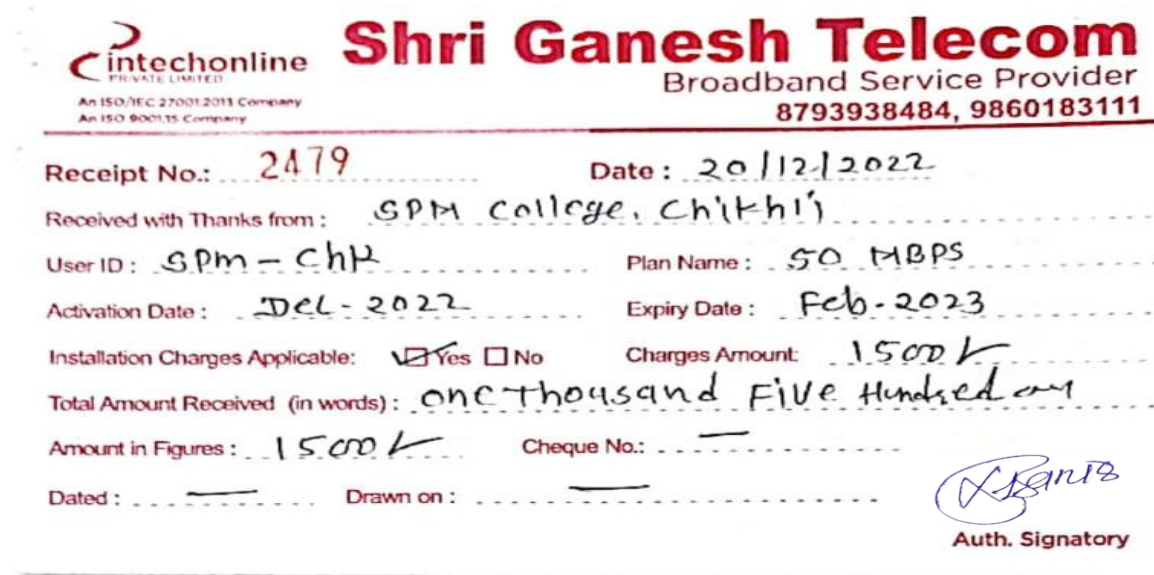 intechonline Shri Ganesh Telecom
PRIVATE LIMITED
Broadband Service Provider
An ISO/IEC 27001:2013 Company
An ISO 9001:15 Company
8793938484, 9860183111
Receipt No.: 2479 Date : 20/12/2022
Received with Thanks from : SPM College, Chikhli
User ID : SPM - Chk Plan Name : 50 MBPS
Activation Date : Dec - 2022 Expiry Date : Feb - 2023
Installation Charges Applicable: Yes No Charges Amount: 1500/-
Total Amount Received (in words) : One Thousand Five Hundred only
Amount in Figures : 1500/- Cheque No.: —
Dated : — Drawn on : —
Auth. Signatory